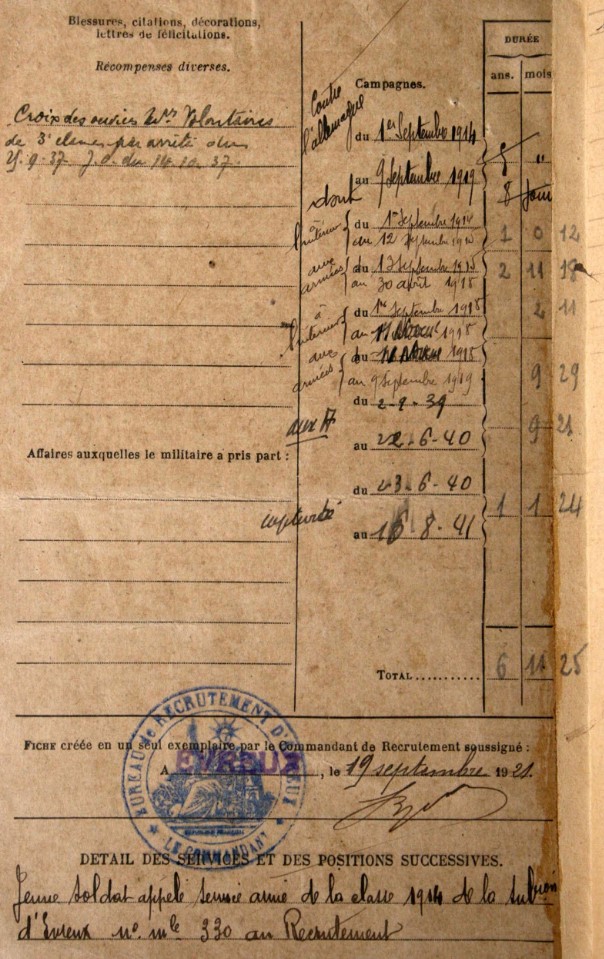 Blessures, citations, décorations,
lettres de félicitations.
Récompenses diverses.
Croix des Volontaires
de 3e classe par arrêté du
9. 37. J. O. du 14. 10. 37.
Affaires auxquelles le militaire a pris part :
Campagnes.
DURÉE
ans. mois
Contre
l'allemagne
du 1er Septembre 1914
au 9 Septembre 1919
5 "
8 Jours
dont
à
l'intérieur
du 1er Septembre 1914
au 12 Septembre 1915
1 0 12
aux
armées
du 13 Septembre 1915
au 30 avril 1918
2 11 18
à
l'intérieur
du 1er Septembre 1918
au 1918
2 11
aux
armées
du 1918
au 9 Septembre 1919
9 29
aux A
du 2-9-39
au 22-6-40
9 21
captivité
du 23-6-40
au 16 8-41
1 1 24
TOTAL........... 6 11 25
FICHE créée en un seul exemplaire par le Commandant de Recrutement soussigné :
A EVREUX, le 19 septembre 1921.
BUREAU DE RECRUTEMENT D'EVREUX
LE COMMANDANT
DETAIL DES SERVICES ET DES POSITIONS SUCCESSIVES.
Jeune soldat appelé service armé de la classe 1914 de la subon
d'Evreux no. mle 330 au Recrutement